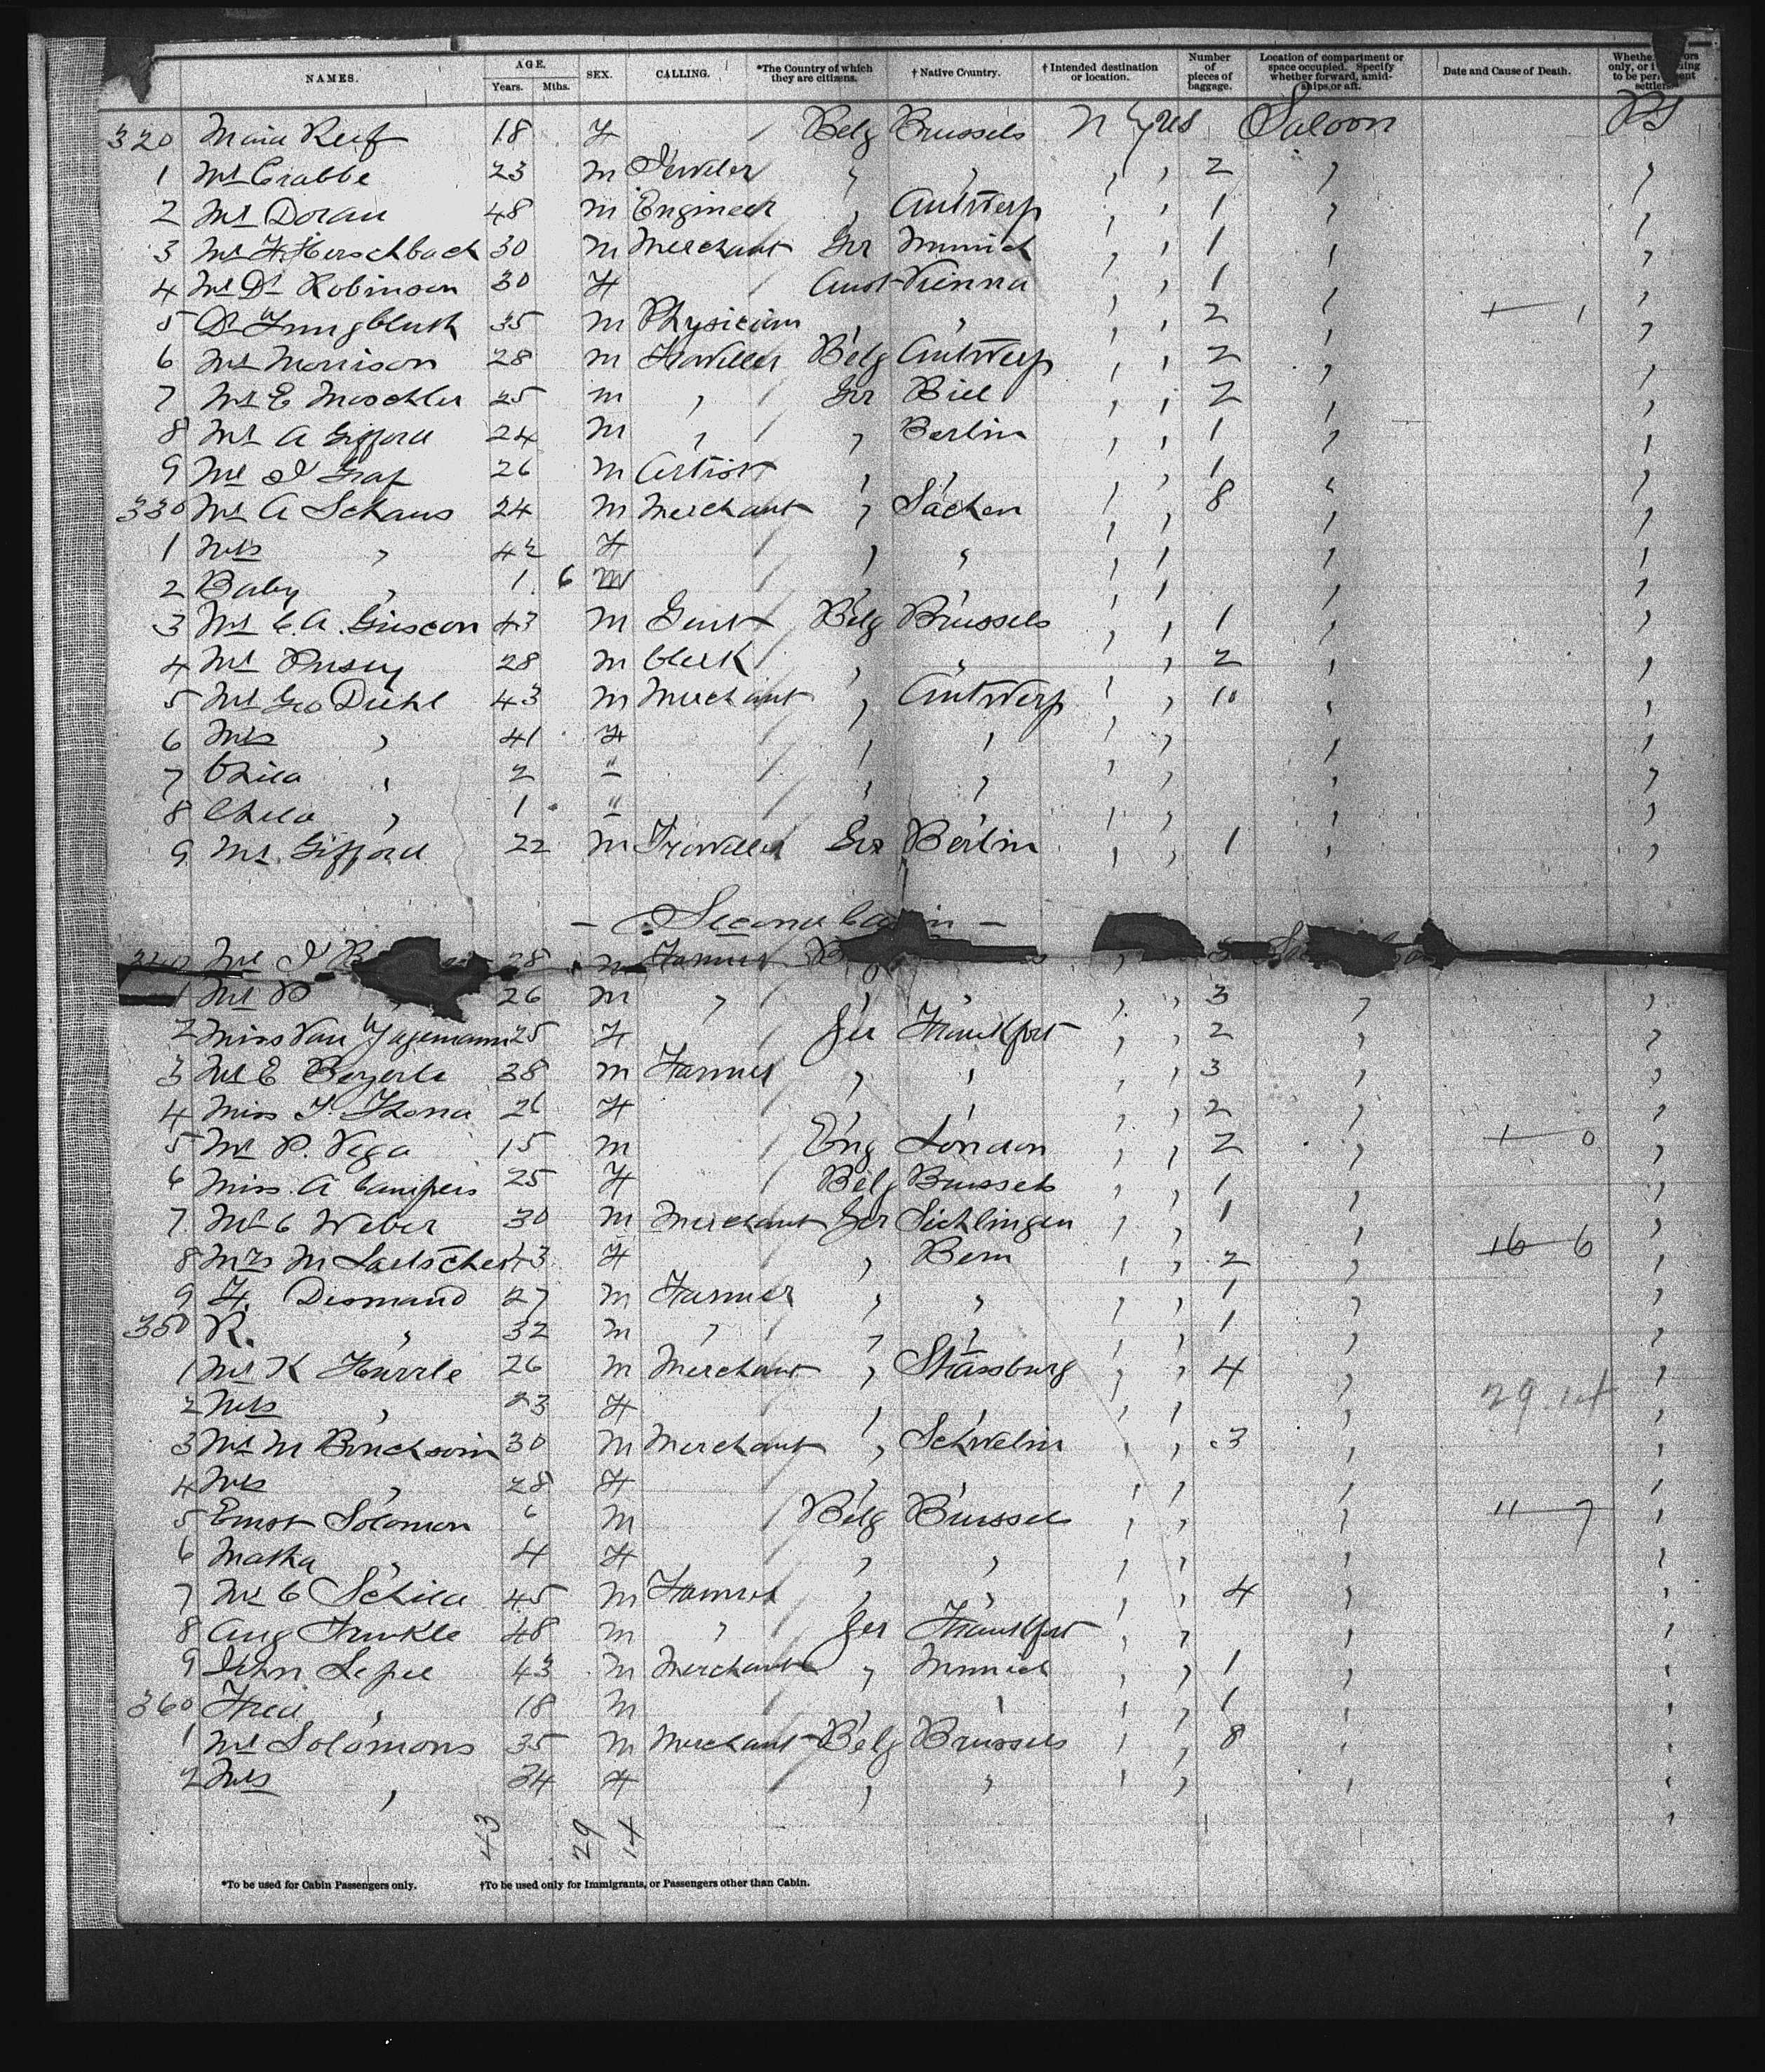 NAMES. AGE. Years. Mths. SEX. CALLING. *The Country of which they are citizens. † Native Country. † Intended destination or location. Number of pieces of baggage. Location of compartment or space occupied. Specify whether forward, amidships, or aft. Date and Cause of Death.
320 Maria Reef 18 F Belg Brussels Saloon
1 Mr Crabbe 23 m Jeweler " " " " 2 " "
2 Mr Doran 48 m Engineer " Antwerp " " 1 " "
3 Mr F. Herschbach 30 m Merchant Ger Munich " " 1 " "
4 Mr Dr Robinson 30 F Aust Vienna " " 1 " "
5 Dr Jungbluth 35 m Physician " " " " 2 " 1 — 1 "
6 Mr Morrison 28 m Traveller Belg Antwerp " " 2 " "
7 Mr E Moschler 25 m " Ger Biel " " 2 " "
8 Mr A Gifford 24 m " " Berlin " " 1 " "
9 Mr J Graf 26 m Artist " " " " 1 " "
330 Mr A Schaus 24 m Merchant " Sachen " " 8 " "
1 Mrs " 42 F " " " " " "
2 Baby " 1 6 m " " " " " "
3 Mr C.A. Griscom 43 m Gent Belg Brussels " " 1 " "
4 Mr Pusey 28 m Clerk " " " 2 " "
5 Mr Geo Diehl 43 m Merchant " Antwerp " " 10 " "
6 Mrs " 41 F " " " " " "
7 Child " 2 " " " " " " "
8 Child " 1 " " " " " " "
9 Mr. Gifford 22 m Traveller Ger Berlin " " 1 " "
— Second Cabin —
340 Mr J 28 m Farmer
1 Mr P 26 m " " " " " 3 " "
2 Miss Van Jagemann 25 F Ger Frankfort " " 2 " "
3 Mr E Beyerle 38 m Farmer " " " " 3 " "
4 Miss F. Thona 26 F " " " " 2 " "
5 Mr P. Vega 15 m Eng London " " 2 " 1 — 0 "
6 Miss A Campers 25 F Belg Brussels " " 1 " "
7 Mr C Weber 30 m Merchant Ger Sichlingen " " 1 " "
8 Mrs M Laetscher 43 F " Bern " " 2 " 16 — 6 "
9 F. Desmand 27 m Farmer " " " " 1 " "
350 R. " 32 m " " " " " 1 " "
1 Mr K Harrle 26 m Merchant " Strassburg " " 4 " "
2 Mrs " 23 F " " " " " 29.14 "
3 Mr M Bruchsoin 30 m Merchant " Schwelin " " 3 " "
4 Mrs " 28 F " " " " " "
5 Ernst Solomon 6 m Belg Brussels " " " 11 — 7 "
6 Matha " 4 F " " " " " "
7 Mr C Schild 45 m Farmer " " " " 4 " "
8 Aug Frankle 48 m " Ger Frankfort " " " "
9 John Lepel 43 m Merchant " Munich " " 1 " "
360 Fred " 18 m " " " 1 " "
1 Mr Solomons 35 m Merchant Belg Brussels " " 8 " "
2 Mrs " 34 F " " " " " "
43 29 14
*To be used for Cabin Passengers only. †To be used only for Immigrants, or Passengers other than Cabin.